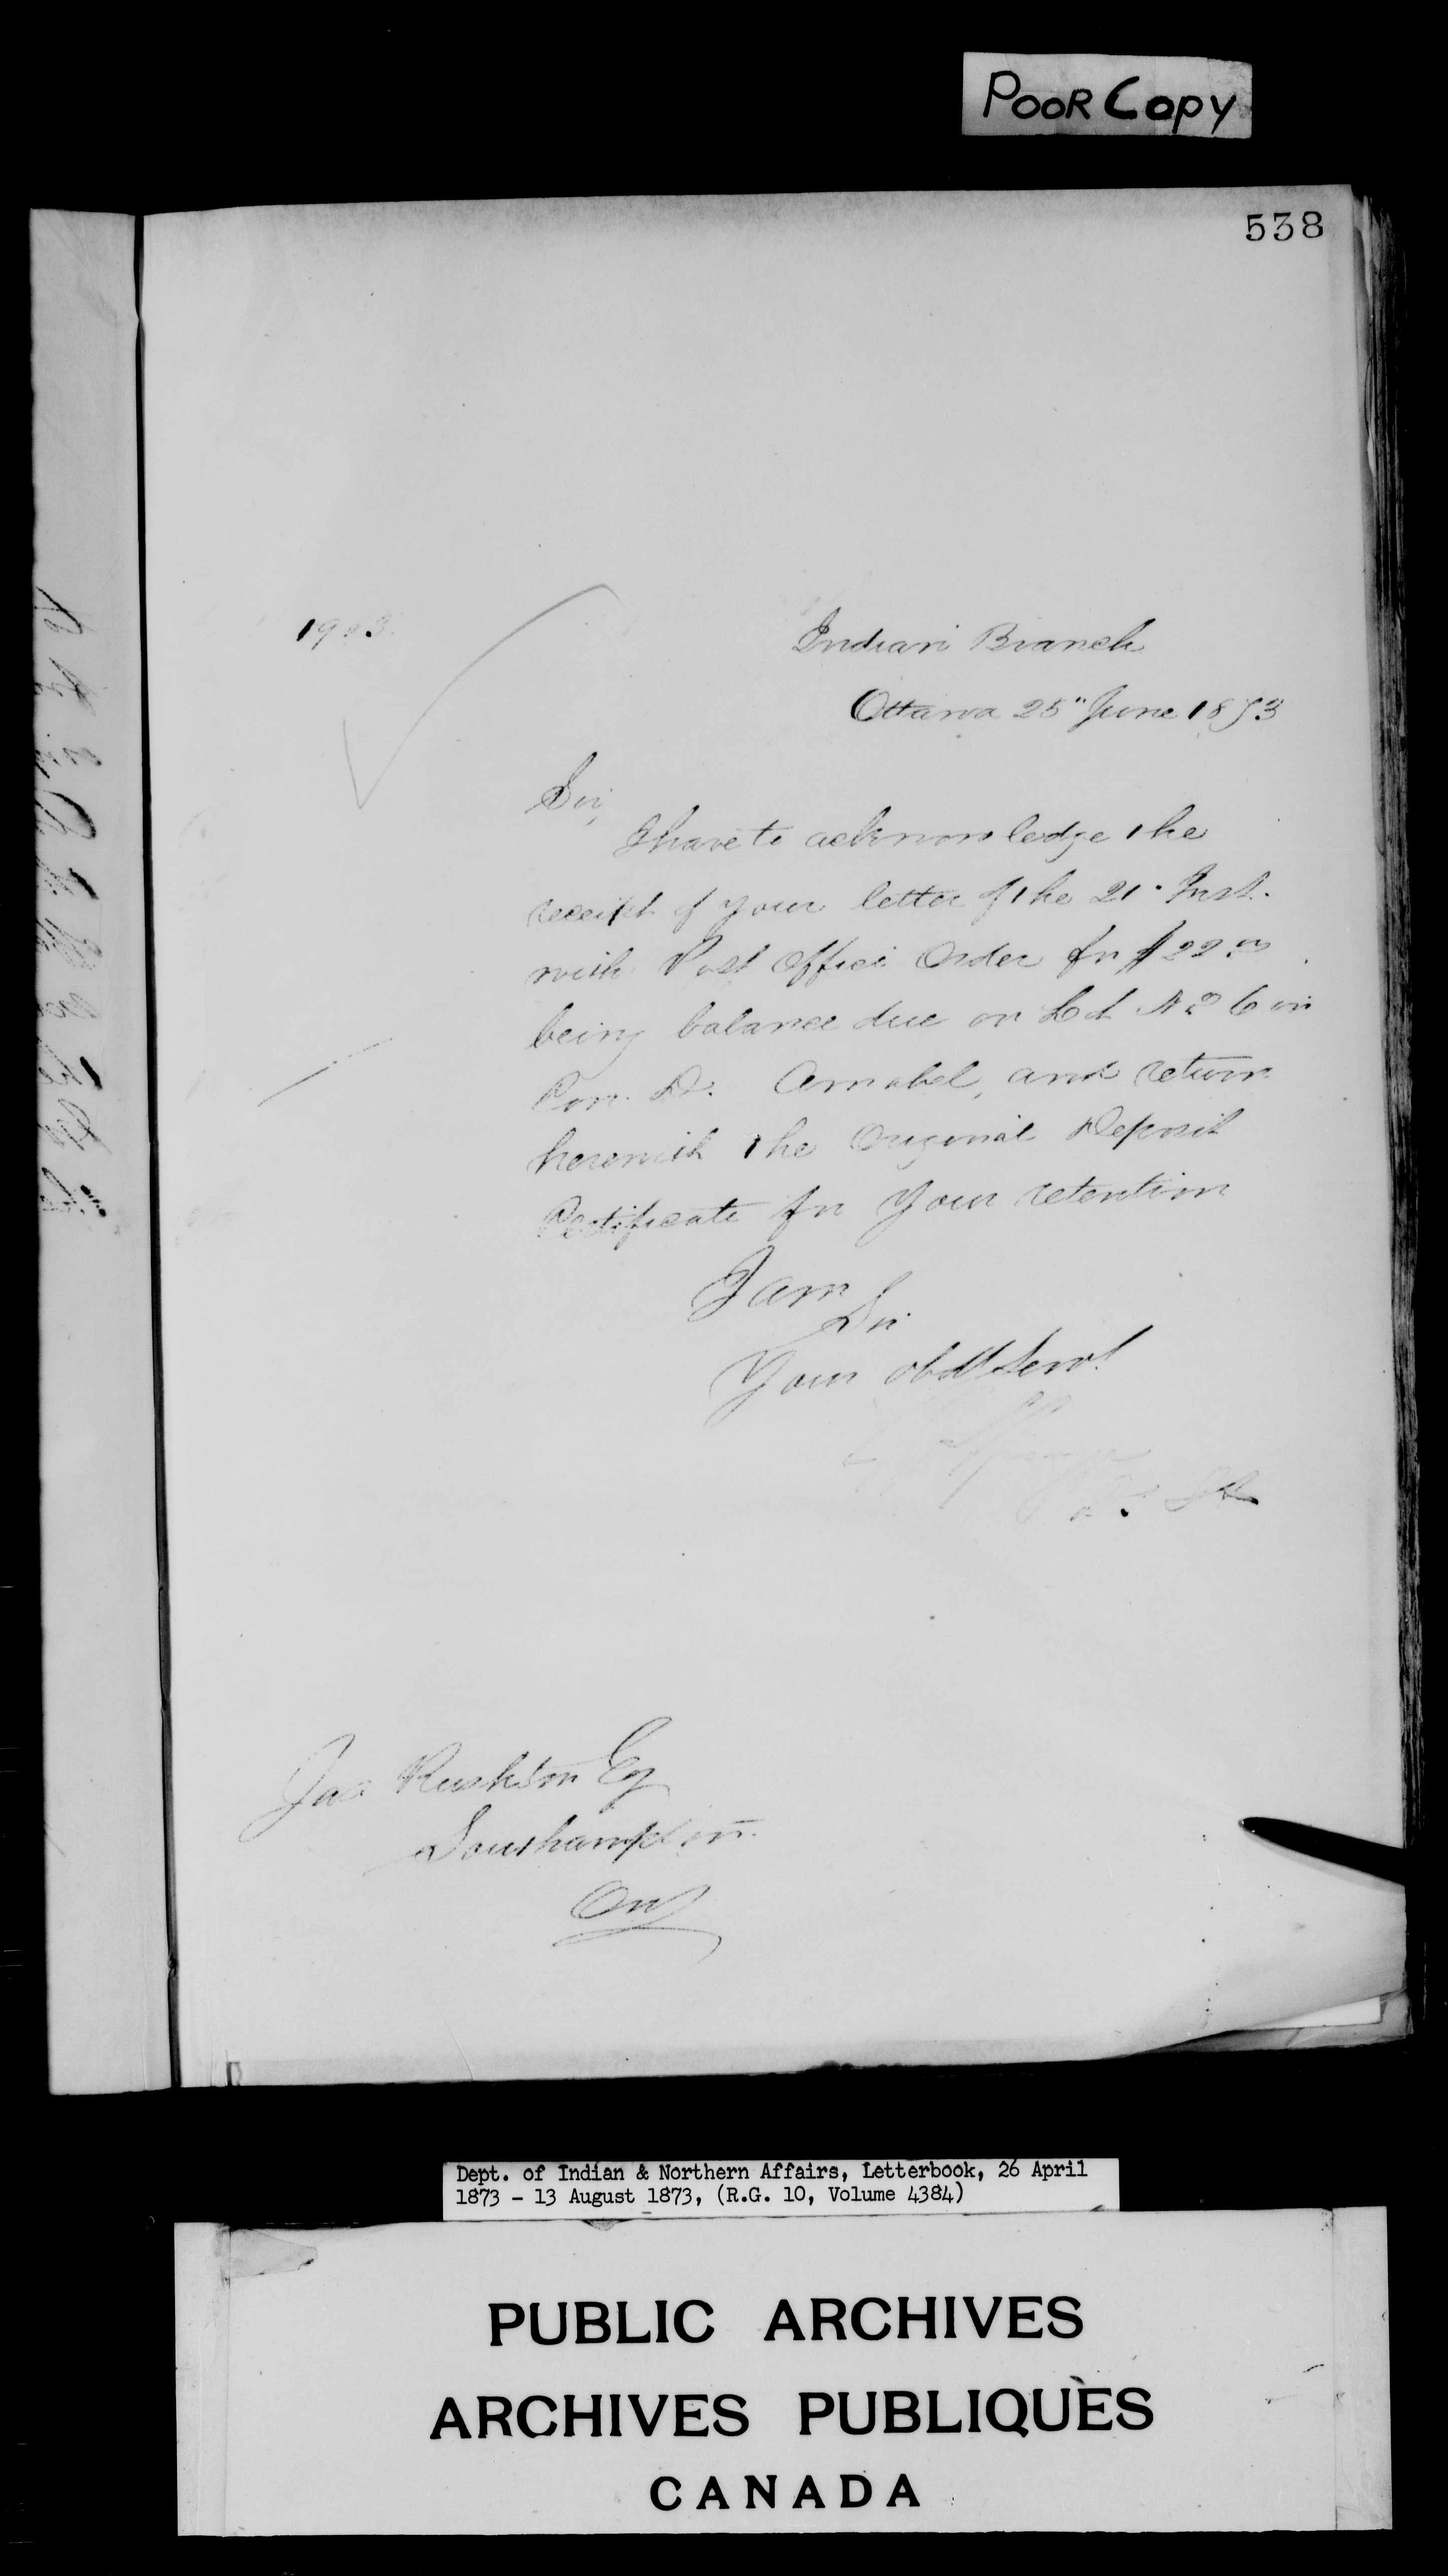 POOR COPY
538
Indian Branch
Ottawa 25" June 1873
Sir,
I have to acknowledge the
receipt of your letter of the 21" Inst.
with Post Office Order for $22.00
being balance due on Lot No 6 in
Con. D. Amabel, and return
herewith the Original Deposit
Certificate for Your retention
I am
Sir
Your obdt Servt
Jas Rushton Esq
Southampton
Ont
Dept. of Indian & Northern Affairs, Letterbook, 26 April
1873 - 13 August 1873, (R.G. 10, Volume 4384)
PUBLIC ARCHIVES
ARCHIVES PUBLIQUES
CANADA